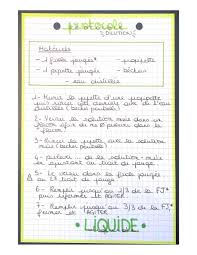 protocole
DILUTION
Matériel
- 1 fiole jaugée* - propipette
- 1 pipette jaugée - bécher
- eau distillée
1- Munir la pipette d'une propipette
puis rincer
2- Verser la solution mère dans un
bécher afin de ne pas dans le
flacon.
3- Rincer la pipette avec la solution
mère
4- de la solution mère
en ajustant au trait de jauge.
5- Le verser dans la fiole jaugée
au trait de jauge
6- Remplir jusqu'au 2/3 de la FJ*
puis refermer et AGITER
7- Remplir jusqu'au 3/3 de la FJ*
fermer et AGITER
LIQUIDE